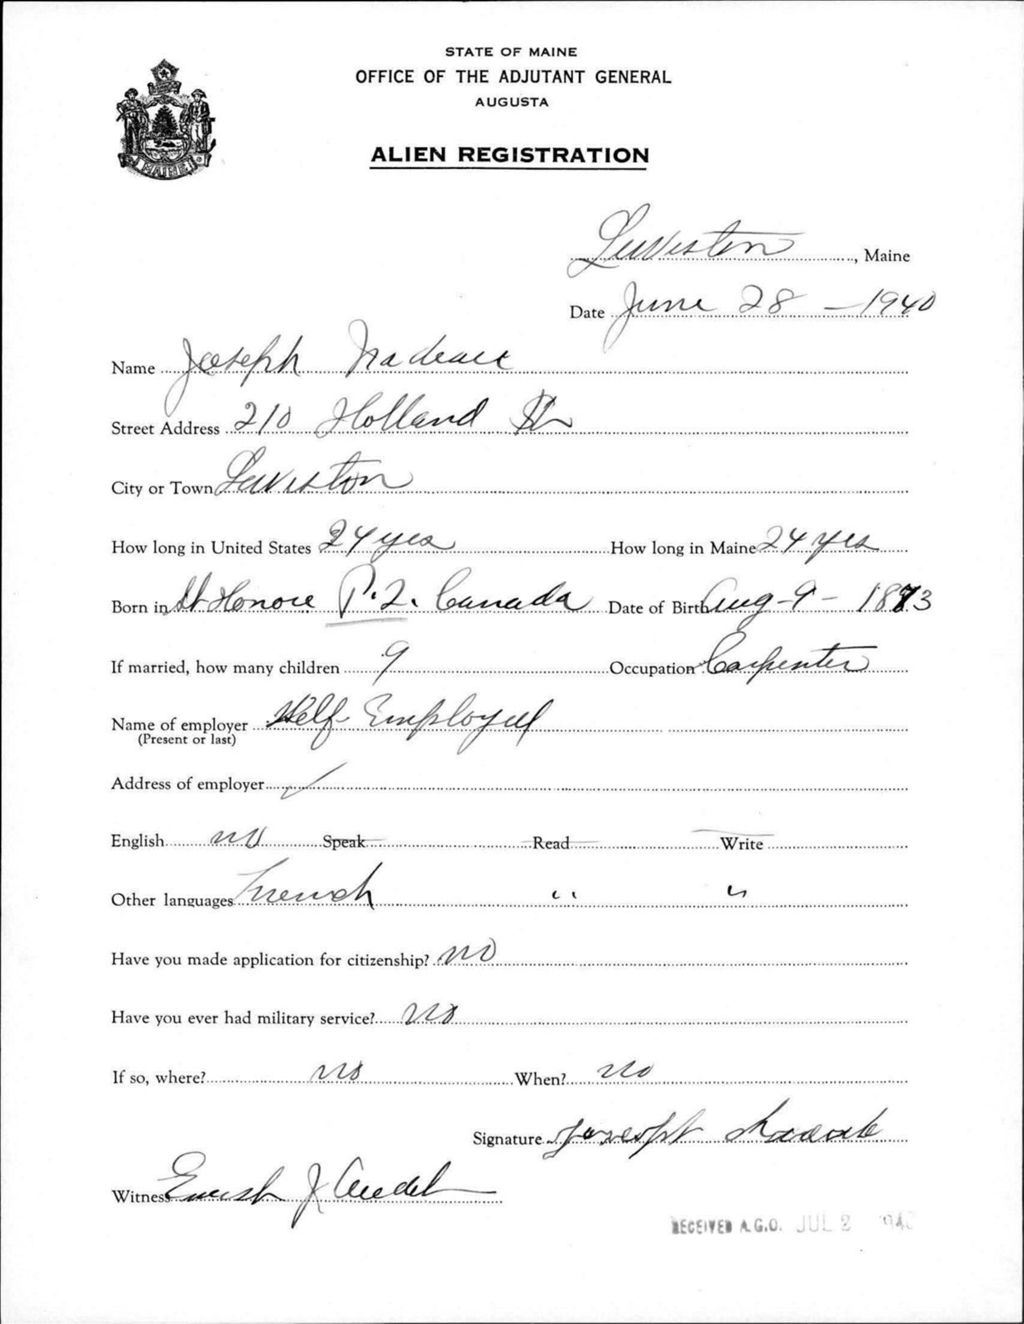 STATE OF MAINE
OFFICE OF THE ADJUTANT GENERAL
AUGUSTA
ALIEN REGISTRATION
MAINE
Lewiston, Maine
Date June 28 - 1940
Name Joseph Nadeau
Street Address 210 Holland St
City or Town Lewiston
How long in United States 24 yrs How long in Maine 24 yrs
Born in St Honore P.Q. Canada Date of Birth Aug - 9 - 1873
If married, how many children 9 Occupation Carpenter
Name of employer Self Employed
(Present or last)
Address of employer
English no Speak Read Write
Other languages French " "
Have you made application for citizenship? no
Have you ever had military service? no
If so, where? no When? no
Signature Joseph
Witness J
RECEIVED A.G.O. JUL 2 1940